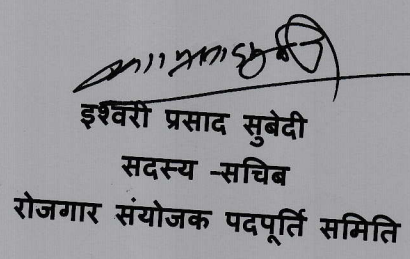 इश्वरी प्रसाद सुबेदी
सदस्य -सचिब
रोजगार संयोजक पदपूर्ति समिति